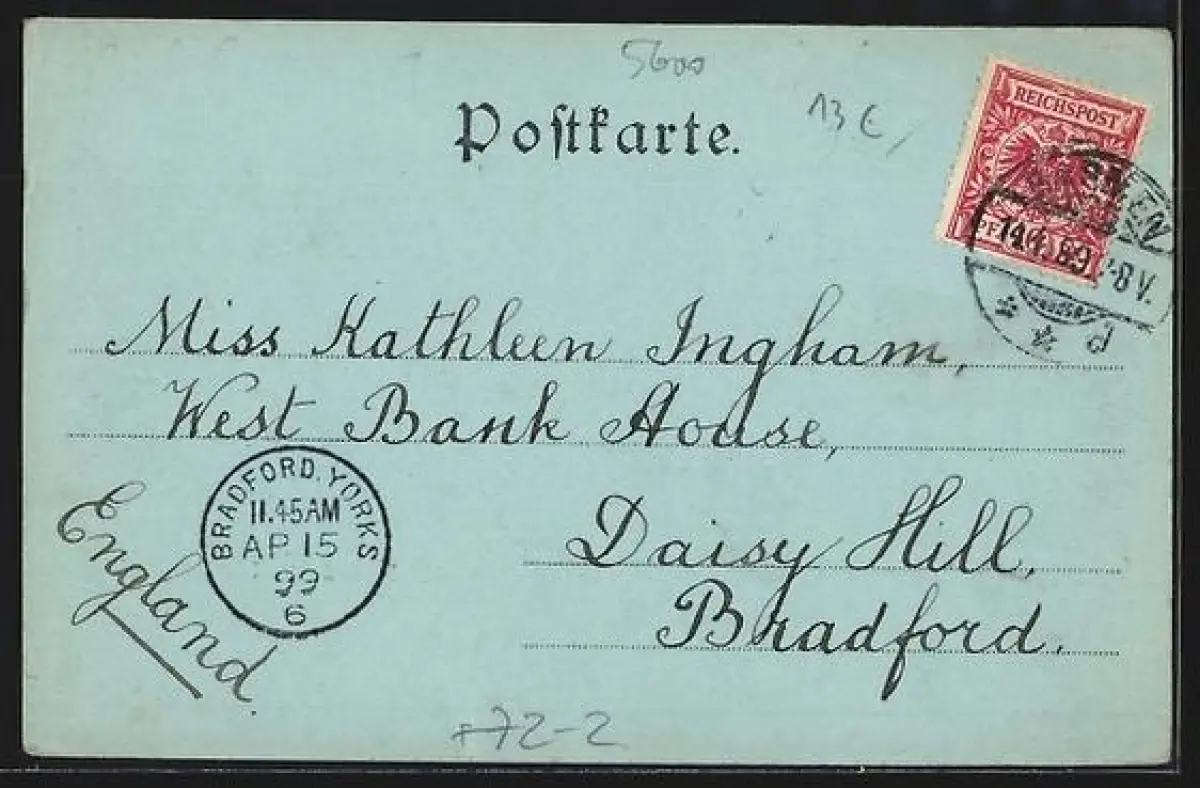 5600
Postkarte.
13 €
REICHSPOST
14.4.99
7-8 V.
d
Miss Kathleen Ingham,
West Bank House,
England.
BRADFORD. YORKS
11.45 AM
AP 15
99
6
Daisy Hill,
Bradford.
72-2